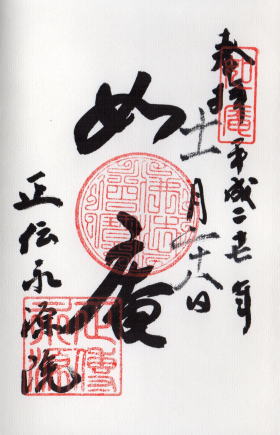 奉拝 平成二十七年
十一月二十八日
如庵
正伝永源院
正傳
永源